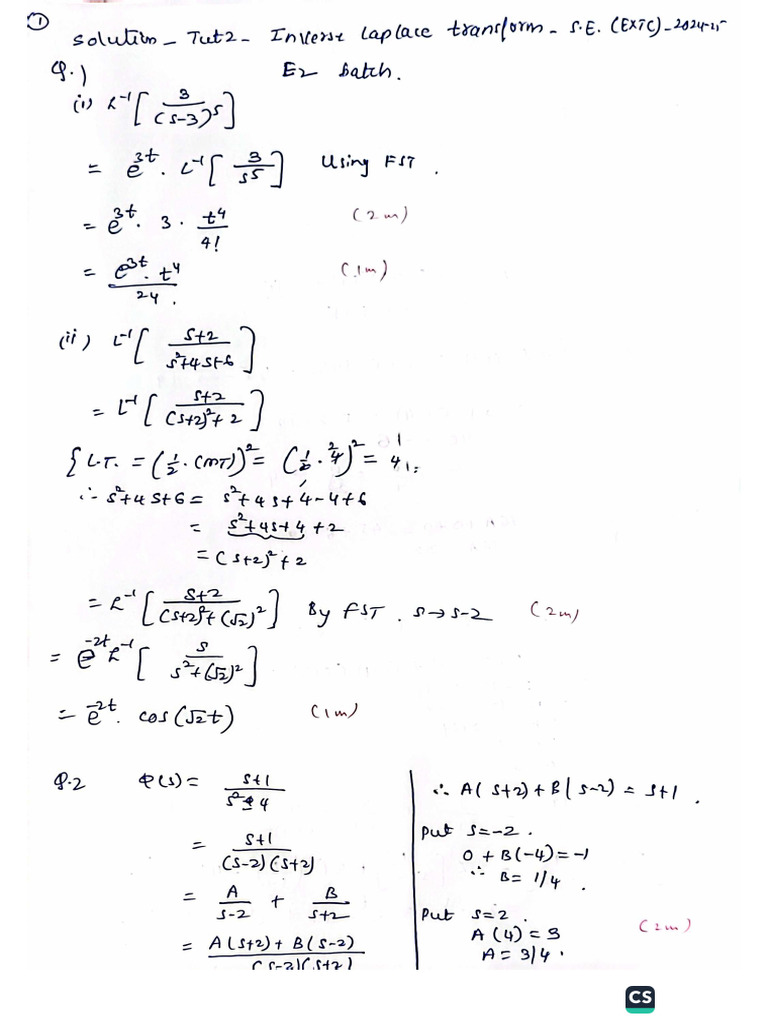 ①
Solution - Tut2 - Inverse Laplace transform - S.E. (EXTC) - 2024-25
Q.1)
E2 batch.
(i) L⁻¹[3/(s-3)⁵]
= e^3t . L⁻¹[3/s⁵] Using FST.
= e^3t . 3 . t⁴/4! (2m)
= e^3t . t⁴/24. (1m)
(ii) L⁻¹[s+2/s²+4s+6]
= L⁻¹[s+2/(s+2)²+2]
{ L.T. = (1/2 . (MT))² = (1/2 . 4)² = 4,
∴ s²+4s+6 = s²+4s+4-4+6
= s²+4s+4+2
= (s+2)²+2
= L⁻¹[s+2/(s+2)²+(√2)²] By FST. s→s-2 (2m)
= e^-2t L⁻¹[s/s²+(√2)²]
= e^-2t . cos(√2t) (1m)
Q.2 Φ(s) = s+1/s²-4
= s+1/(s-2)(s+2)
= A/s-2 + B/s+2
= A(s+2)+B(s-2)/(s-2)(s+2)
∴ A(s+2)+B(s-2) = s+1.
Put s=-2.
0+B(-4)=-1
∴ B=1/4.
Put s=2.
A(4)=3 (2m)
A=3/4.
CS